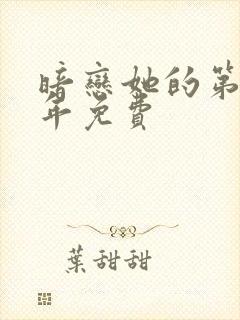 暗戀她的第
年免費
葉甜甜